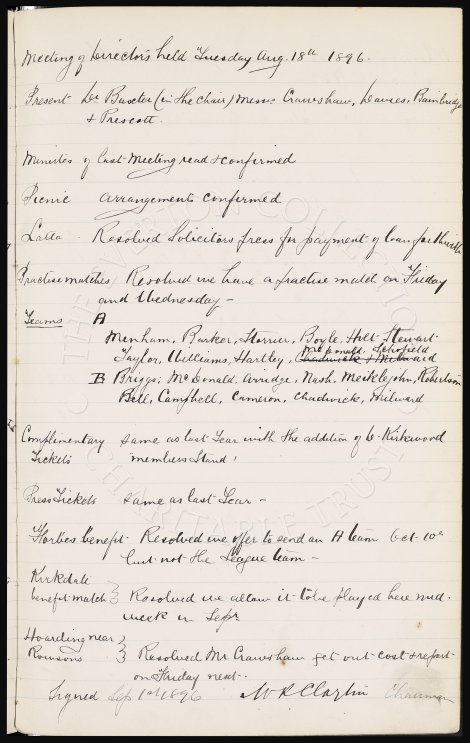 Meeting of Directors held Tuesday Aug. 18th 1896.
Present Dr Baxter (in the Chair) Messrs Crawshaw, Davies, Bainbridge
& Prescott.
Minutes of last Meeting read & confirmed
Picnic arrangements confirmed
Latta - Resolved Solicitors press for payment of loan forthwith
Practise matches Resolved we have a practise match on Friday
and Wednesday -
Teams A
Menham, Barker, Storrier, Boyle, Holt Stewart
McDonald. Schofield
Taylor, Williams, Hartley, Chadwick & Milward
B Briggs, McDonald, Arridge, Nash, Meiklejohn, Robertson
Bell, Campbell, Cameron, Chadwick, Milward
Complimentary same as last Year with the addition of G. Kirkwood
Tickets members Stand
Press Tickets same as last Year -
Forbes benefit - Resolved we offer to send an A team Oct. 10th
but not the League team -
Kirkdale
benefit match } Resolved we allow it to be played here mid-
week in Sepr
Hoarding near
} Resolved Mr Crawshaw get out cost & report
on Friday next -
Signed Sep 1st 1896 W R Clayton Chairman
THE EVERTON COLLECTION
CHARITABLE TRUST